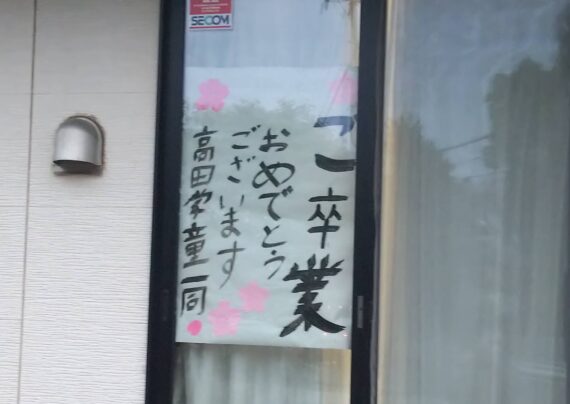 SECOM
ご卒業
おめでとう
ございます
高田学童一同